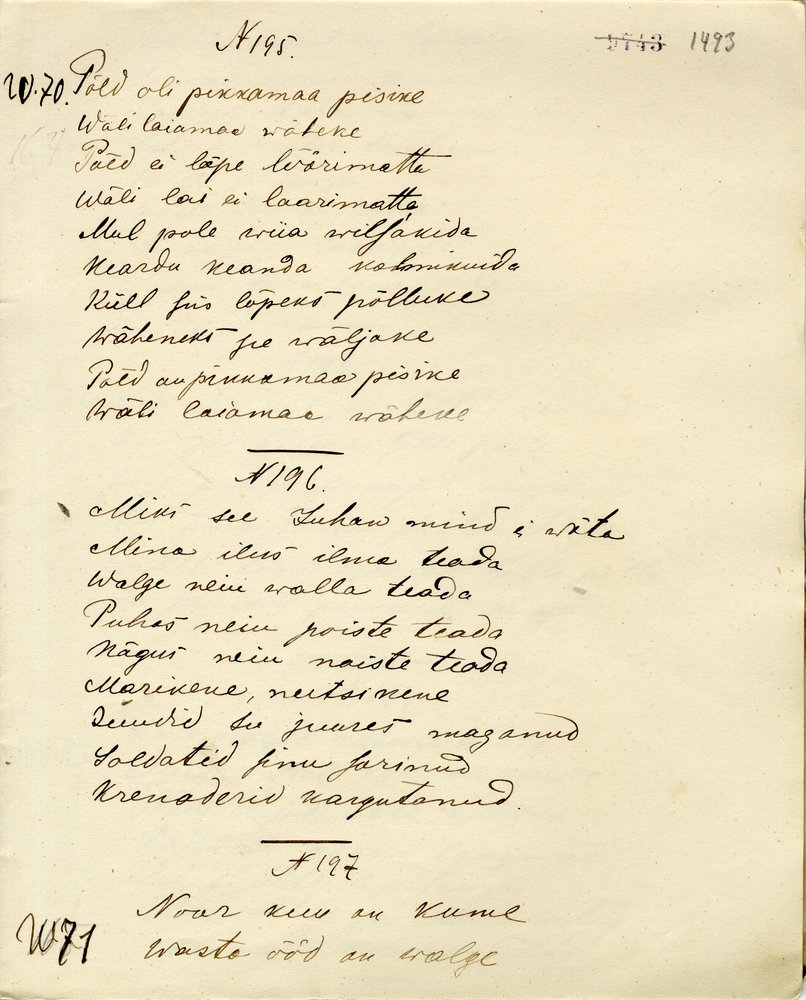 N195.
5743 1493
W.70. Põld oli pikkamaa pisike
Wäli laiamaa wäheke
Põld ei lõpe lõõrimatta
Wäli lai ei laarimatta
Mul pole wiia wilsakida
Keardu keanda kalmikuida
Küll siis lõpeks põlluke
Wäheneks see wäljake
Põld au pikkamaa pisike
Wäli laiamaa wäheke
N196.
Miks see Juhan mind ei wõta
Mina ilus ilma teada
Walge neiu walla teada
Puhas neiu poiste teada
Nägus neiu naiste teada
Marikene, neitsikene
Juudid su juures maganud
Soldatid sinu sorinud
Krenaderid kargutanud.
N197
W71
Noor kuu au kume
Wasta ööd au walge